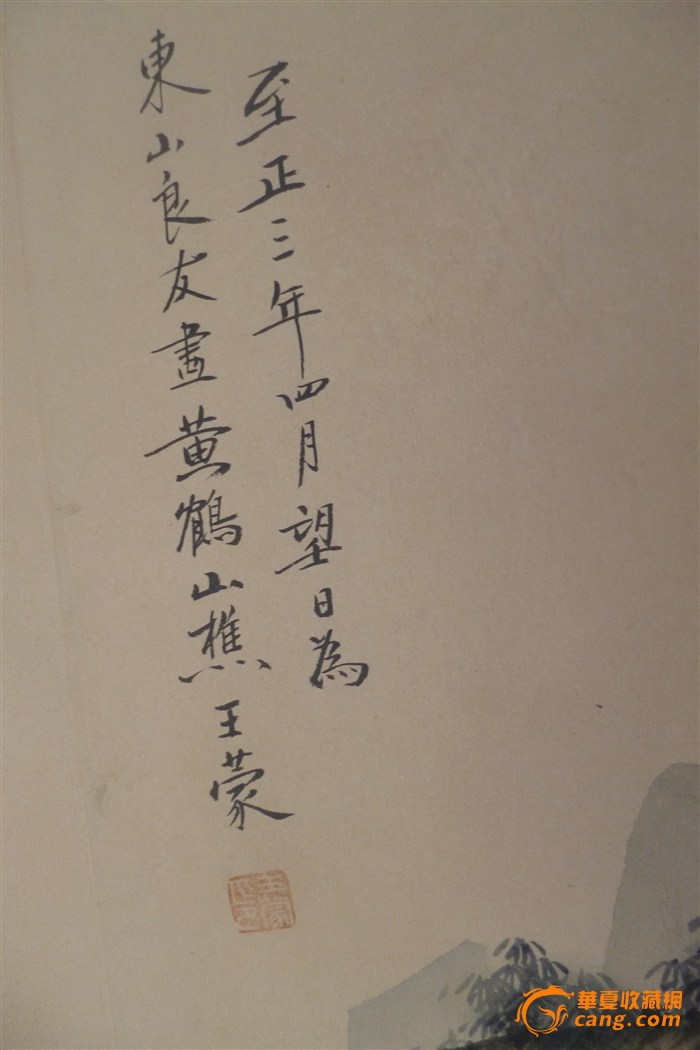 至正三年四月望日為
東山良友畫黄鶴山樵王蒙
華夏收藏網
cang.com